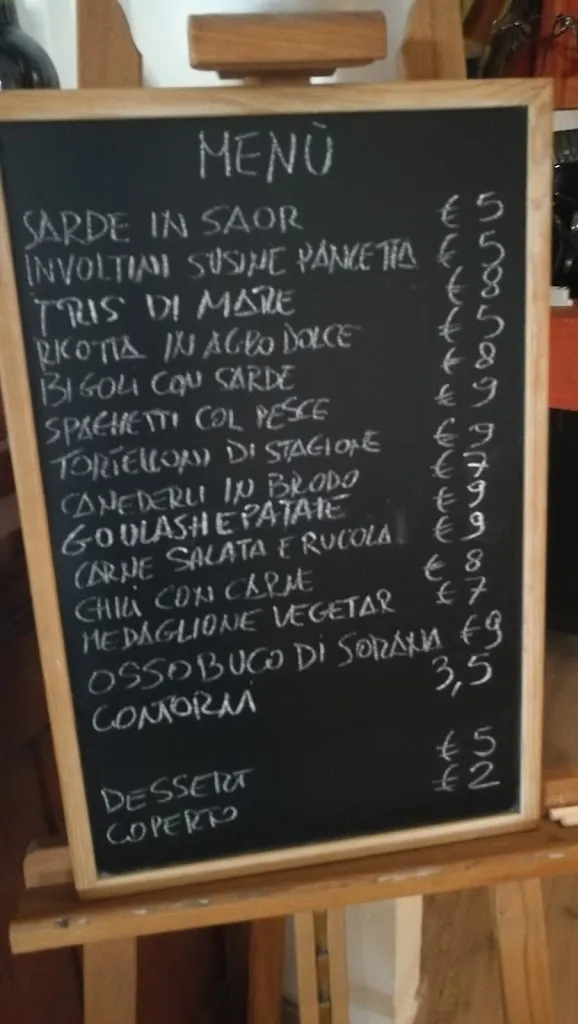 MENÙ
SARDE IN SAOR € 5
INVOLTINI SUSINE PANCETTA € 5
TRIS DI MARE € 8
RICOTTA IN AGRODOLCE € 5
BIGOLI CON SARDE € 8
SPAGHETTI COL PESCE € 9
TORTELLONI DI STAGIONE € 9
CANEDERLI IN BRODO € 7
GOULASH E PATATE € 9
CARNE SALATA E RUCOLA € 9
CHILI CON CARNE € 8
MEDAGLIONE VEGETAR € 7
OSSOBUCO DI SORANA €9
CONTORNI 3,5
DESSERT € 5
COPERTO € 2